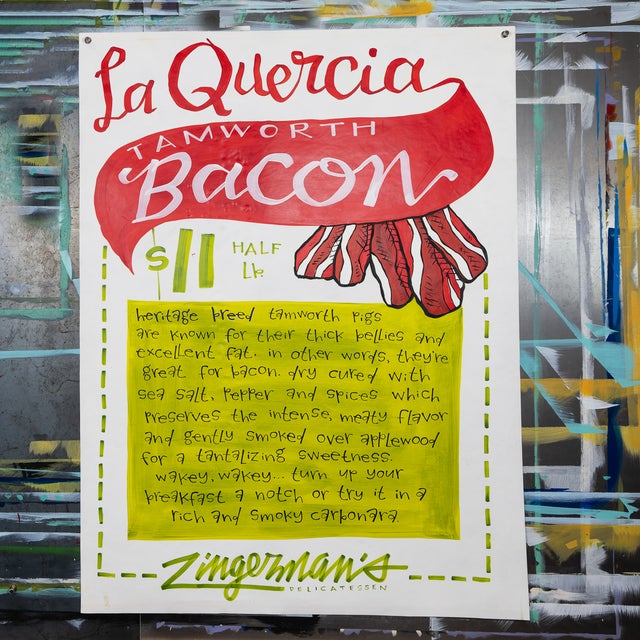 La Quercia
TAMWORTH
Bacon
$11 HALF
Lb
heritage breed tamworth pigs
are known for their thick bellies and
excellent fat. in other words, they're
great for bacon. dry cured with
sea salt, pepper and spices which
preserves the intense, meaty flavor
and gently smoked over applewood
for a tantalizing sweetness.
wakey, wakey... turn up your
breakfast a notch or try it in a
rich and smoky carbonara.
Zingerman's
DELICATESSEN